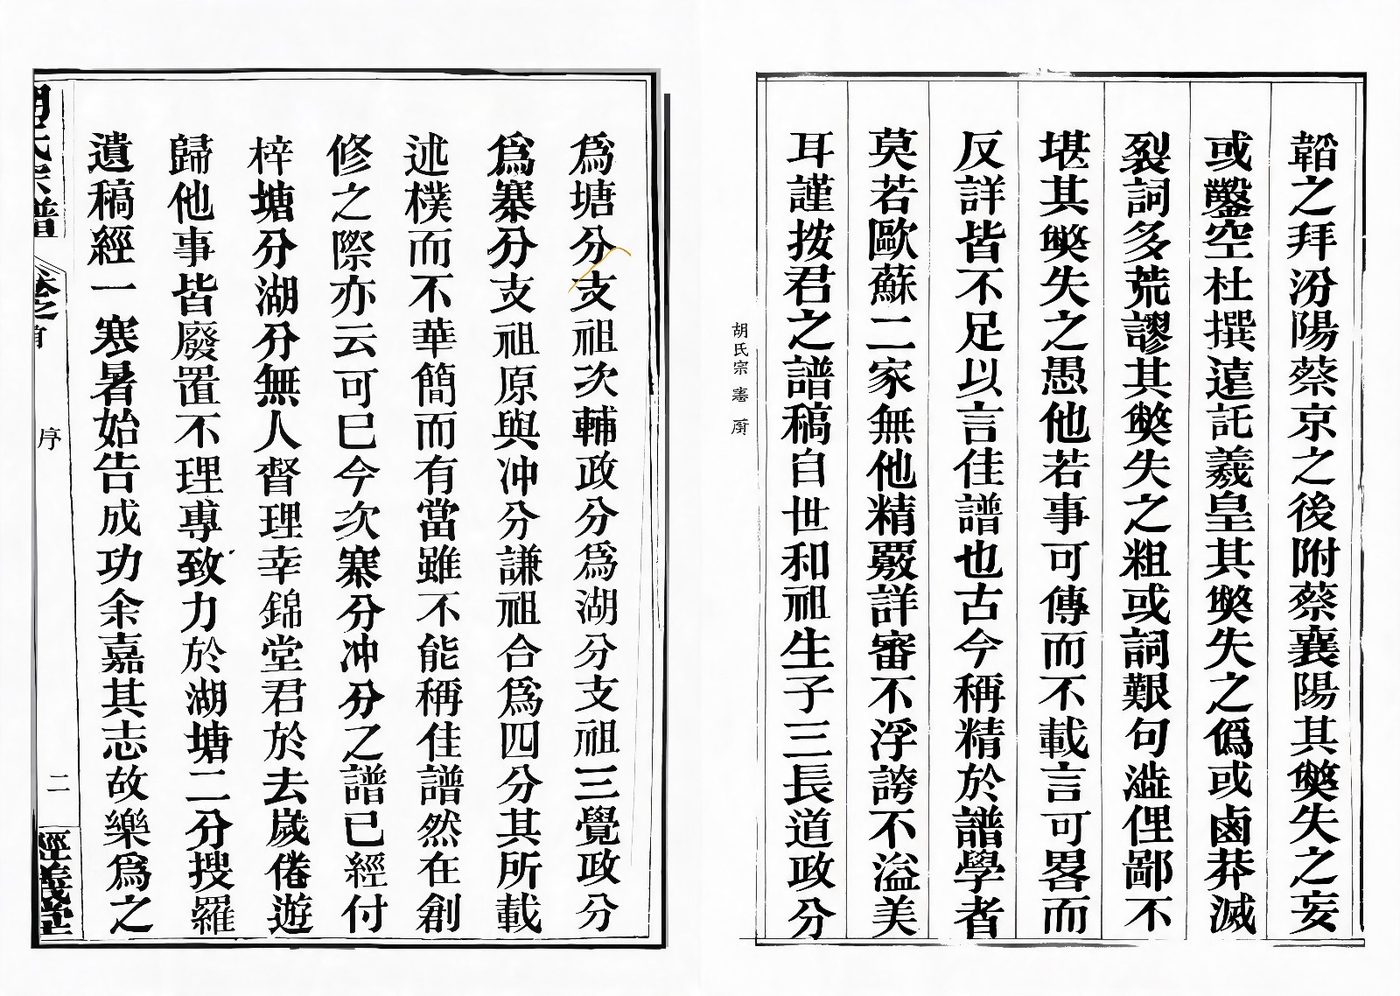 韜之拜汾陽蔡京之後附蔡襄陽其獘失之妄
或鑿空杜撰遠託羲皇其獘失之僞或鹵莽滅
裂詞多荒謬其獘失之粗或詞艱句澁俚鄙不
堪其獘失之愚他若事可傳而不載言可畧而
反詳皆不足以言佳譜也古今稱精於譜學者
莫若歐蘇二家無他精覈詳審不浮誇不溢美
耳謹按君之譜稿自世和祖生子三長道政分
胡氏宗
為塘分支祖次輔政分為湖分支祖三覺政分
為寨分支祖原與冲分謙祖合為四分其所載
述樸而不華簡而有當雖不能稱佳譜然在創
修之際亦云可巳今次寨分冲分之譜已經付
梓塘分湖分無人督理幸錦堂君於去歲倦遊
歸他事皆廢置不理專致力於湖塘二分搜羅
遺稿經一寒暑始告成功余嘉其志故樂為之
胡氏宗譜 卷之首 序 二 經義堂